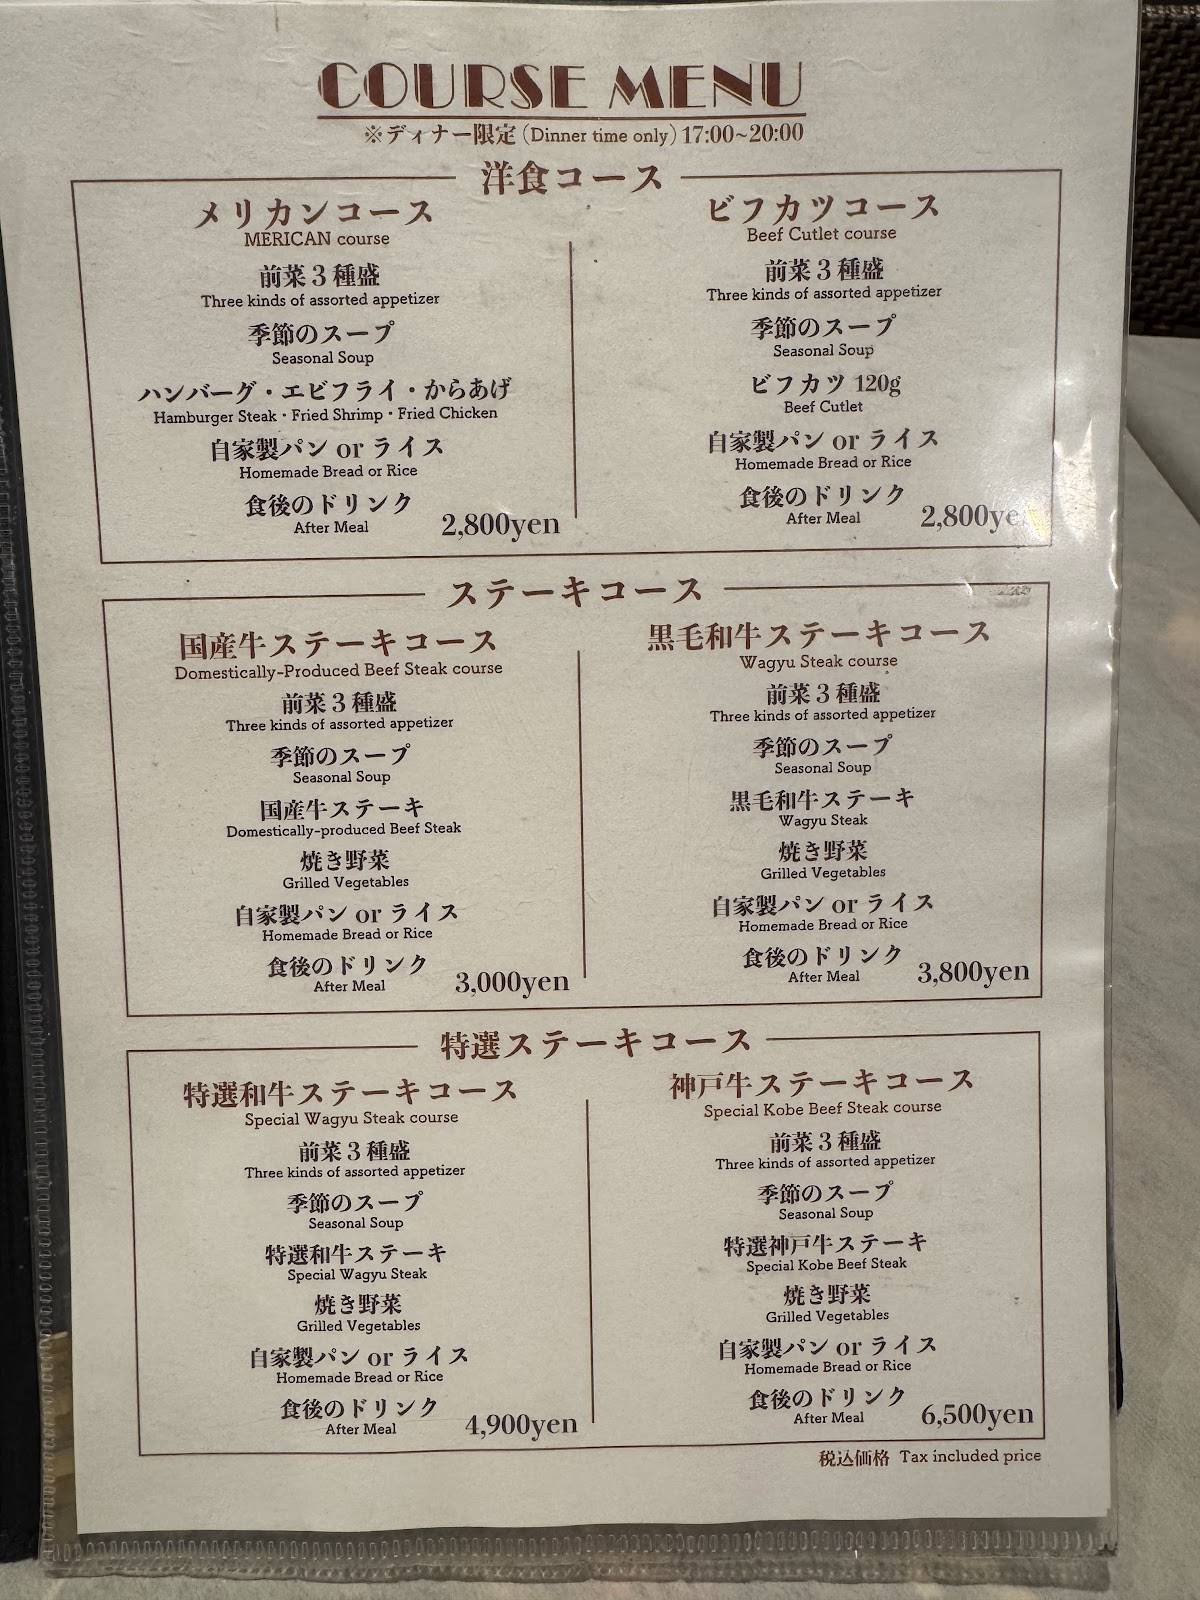 COURSE MENU
※ディナー限定(Dinner time only)17:00~20:00
洋食コース
メリカンコース
MERICAN course
前菜3種盛
Three kinds of assorted appetizer
季節のスープ
Seasonal Soup
ハンバーグ・エビフライ・からあげ
Hamburger Steak・Fried Shrimp・Fried Chicken
自家製パン or ライス
Homemade Bread or Rice
食後のドリンク
After Meal
2,800yen
ビフカツコース
Beef Cutlet course
前菜3種盛
Three kinds of assorted appetizer
季節のスープ
Seasonal Soup
ビフカツ 120g
Beef Cutlet
自家製パン or ライス
Homemade Bread or Rice
食後のドリンク
After Meal
2,800ye
ステーキコース
国産牛ステーキコース
Domestically-Produced Beef Steak course
前菜3種盛
Three kinds of assorted appetizer
季節のスープ
Seasonal Soup
国産牛ステーキ
Domestically-produced Beef Steak
焼き野菜
Grilled Vegetables
自家製パン or ライス
Homemade Bread or Rice
食後のドリンク
After Meal
3,000yen
黒毛和牛ステーキコース
Wagyu Steak course
前菜3種盛
Three kinds of assorted appetizer
季節のスープ
Seasonal Soup
黒毛和牛ステーキ
Wagyu Steak
焼き野菜
Grilled Vegetables
自家製パン or ライス
Homemade Bread or Rice
食後のドリンク
After Meal
3,800yen
特選ステーキコース
特選和牛ステーキコース
Special Wagyu Steak course
前菜3種盛
Three kinds of assorted appetizer
季節のスープ
Seasonal Soup
特選和牛ステーキ
Special Wagyu Steak
焼き野菜
Grilled Vegetables
自家製パン or ライス
Homemade Bread or Rice
食後のドリンク
After Meal
4,900yen
神戸牛ステーキコース
Special Kobe Beef Steak course
前菜3種盛
Three kinds of assorted appetizer
季節のスープ
Seasonal Soup
特選神戸牛ステーキ
Special Kobe Beef Steak
焼き野菜
Grilled Vegetables
自家製パン or ライス
Homemade Bread or Rice
食後のドリンク
After Meal
6,500yen
税込価格 Tax included price